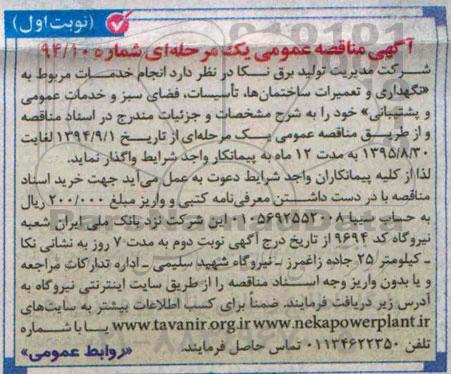 (نوبت اول)
آگهی مناقصه عمومی یک مرحله‌ای شماره ۹۴/۱۰
شرکت مدیریت تولید برق نکا در نظر دارد انجام خدمات مربوط به
«نگهداری و تعمیرات ساختمان‌ها، تأسیسات، فضای سبز و خدمات عمومی
و پشتیبانی» خود را به شرح مشخصات و جزئیات مندرج در اسناد مناقصه
و از طریق مناقصه عمومی یک مرحله‌ای از تاریخ ۱۳۹۴/۹/۱ لغایت
۱۳۹۵/۸/۳۰ به مدت ۱۲ ماه به پیمانکار واجد شرایط واگذار نماید.
لذا از کلیه پیمانکاران واجد شرایط دعوت به عمل می‌آید جهت خرید اسناد
مناقصه با در دست داشتن معرفی‌نامه کتبی و واریز مبلغ ۲۰۰/۰۰۰ ریال
به حساب سیبا ۰۱۰۵۶۹۲۵۵۲۰۰۸ این شرکت نزد بانک ملی ایران شعبه
نیروگاه کد ۹۶۹۴ از تاریخ درج آگهی نوبت دوم به مدت ۷ روز به نشانی نکا
ـ کیلومتر ۲۵ جاده زاغمرز ـ نیروگاه شهید سلیمی ـ اداره تدارکات مراجعه
و یا بدون واریز وجه اسناد مناقصه را از طریق سایت اینترنتی نیروگاه به
آدرس زیر دریافت فرمایند. ضمناً برای کسب اطلاعات بیشتر به سایت‌های
www.nekapowerplant.ir www.tavanir.org.ir یا با شماره
تلفن ۰۱۱۳۴۶۲۲۳۵۰ تماس حاصل فرمایند.
«روابط عمومی»